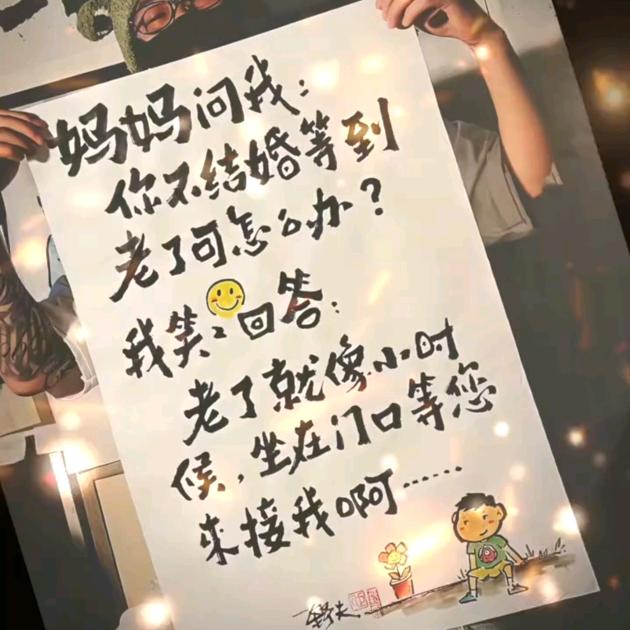 妈妈问我：
你不结婚等到
老了可怎么办？
我笑笑回答：
老了就像小时
候，坐在门口等您
来接我啊……